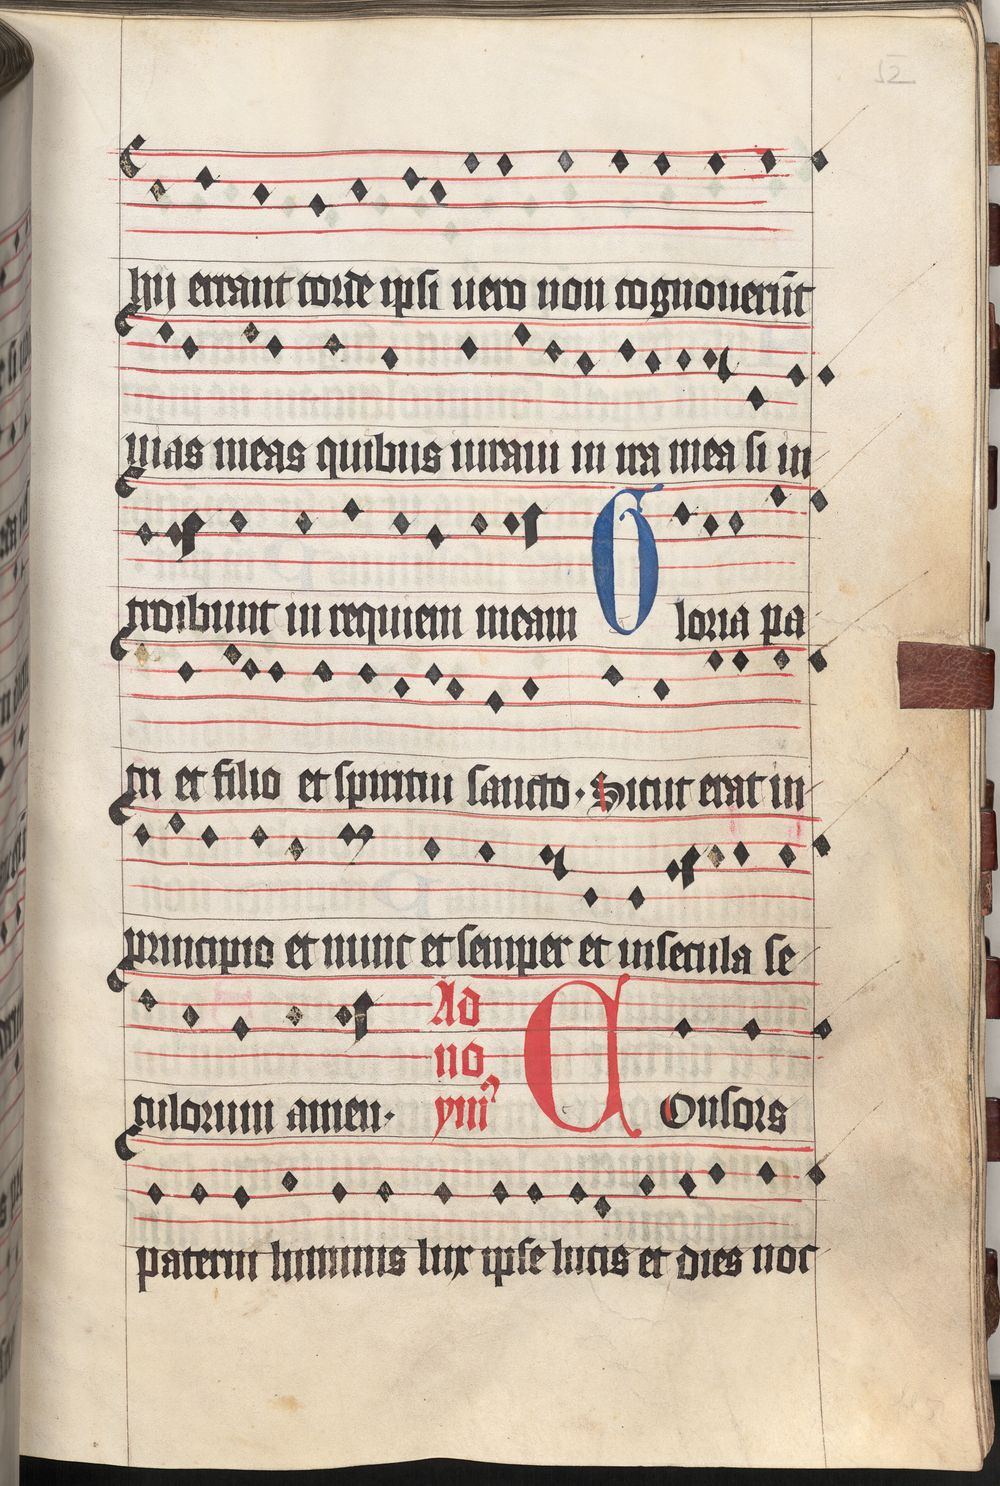 52
hij errant corde ipsi vero non cognouerūt
uias meas quibus iuraui in ira mea si in
troibunt in requiem meam Gloria pa
tri et filio et spiritui sancto · Sicut erat in
principio et nunc et semper et insecula se
culorum amen · Ad no ymꝰ COnsors
paterni luminis lux ipse lucis et dies noc